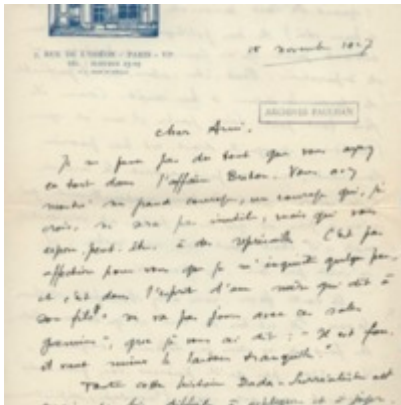 RUE DE L'ODÉON - PARIS - VI
novembre 1927
ARCHIVES PAULHAN
cher Ami,
Je ne pense pas du tout que vous ayez
eu tort dans l'affaire Breton. Vous avez
montré un grand courage, un courage qui, je
crois, ne sera pas inutile, mais qui vous
expose peut-être à des représailles. C'est par
affection pour vous que je m'inquiète quelque peu,
et c'est dans l'esprit d'une mère qui dit à
son fils : " ne va pas jouer avec ce sale
gamin ", que je vous ai dit : " Il est fou,
il vaut mieux le laisser tranquille "
Toute cette histoire Dada-Surréaliste est
difficile à expliquer et à juger,